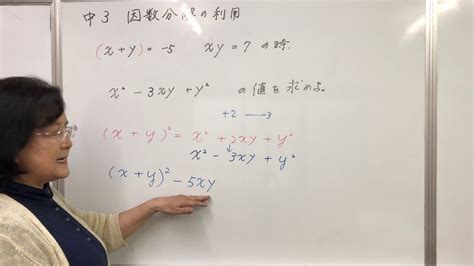 中3 因数分解の利用
(x+y)=-5 xy=7 の時.
x²-3xy+y² の値を求めよ。
+2 → -3
(x+y)²=x²+2xy+y²
x²-3xy+y²
(x+y)²-5xy